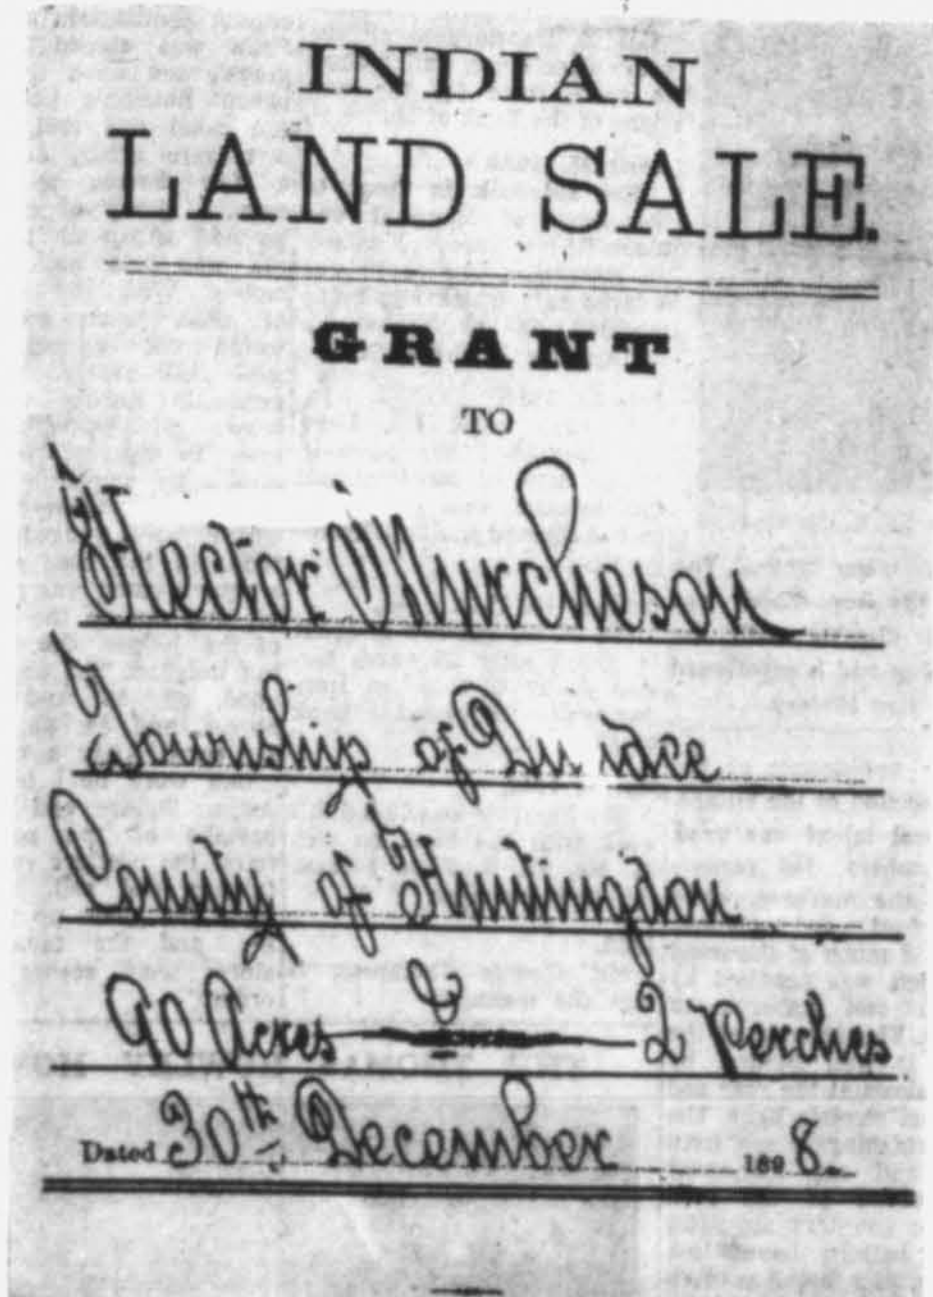 INDIAN
LAND SALE.
GRANT
TO
Hector Murcheson
Township of Dundee
County of Huntingdon
90 Acres & 2 Perches
Dated 30th December 1898